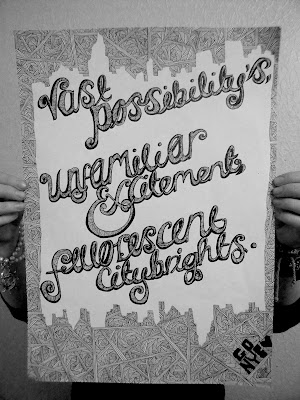 Vast
possibility's,
unfamiliar
Excitement,
fluorescent
citybrights.